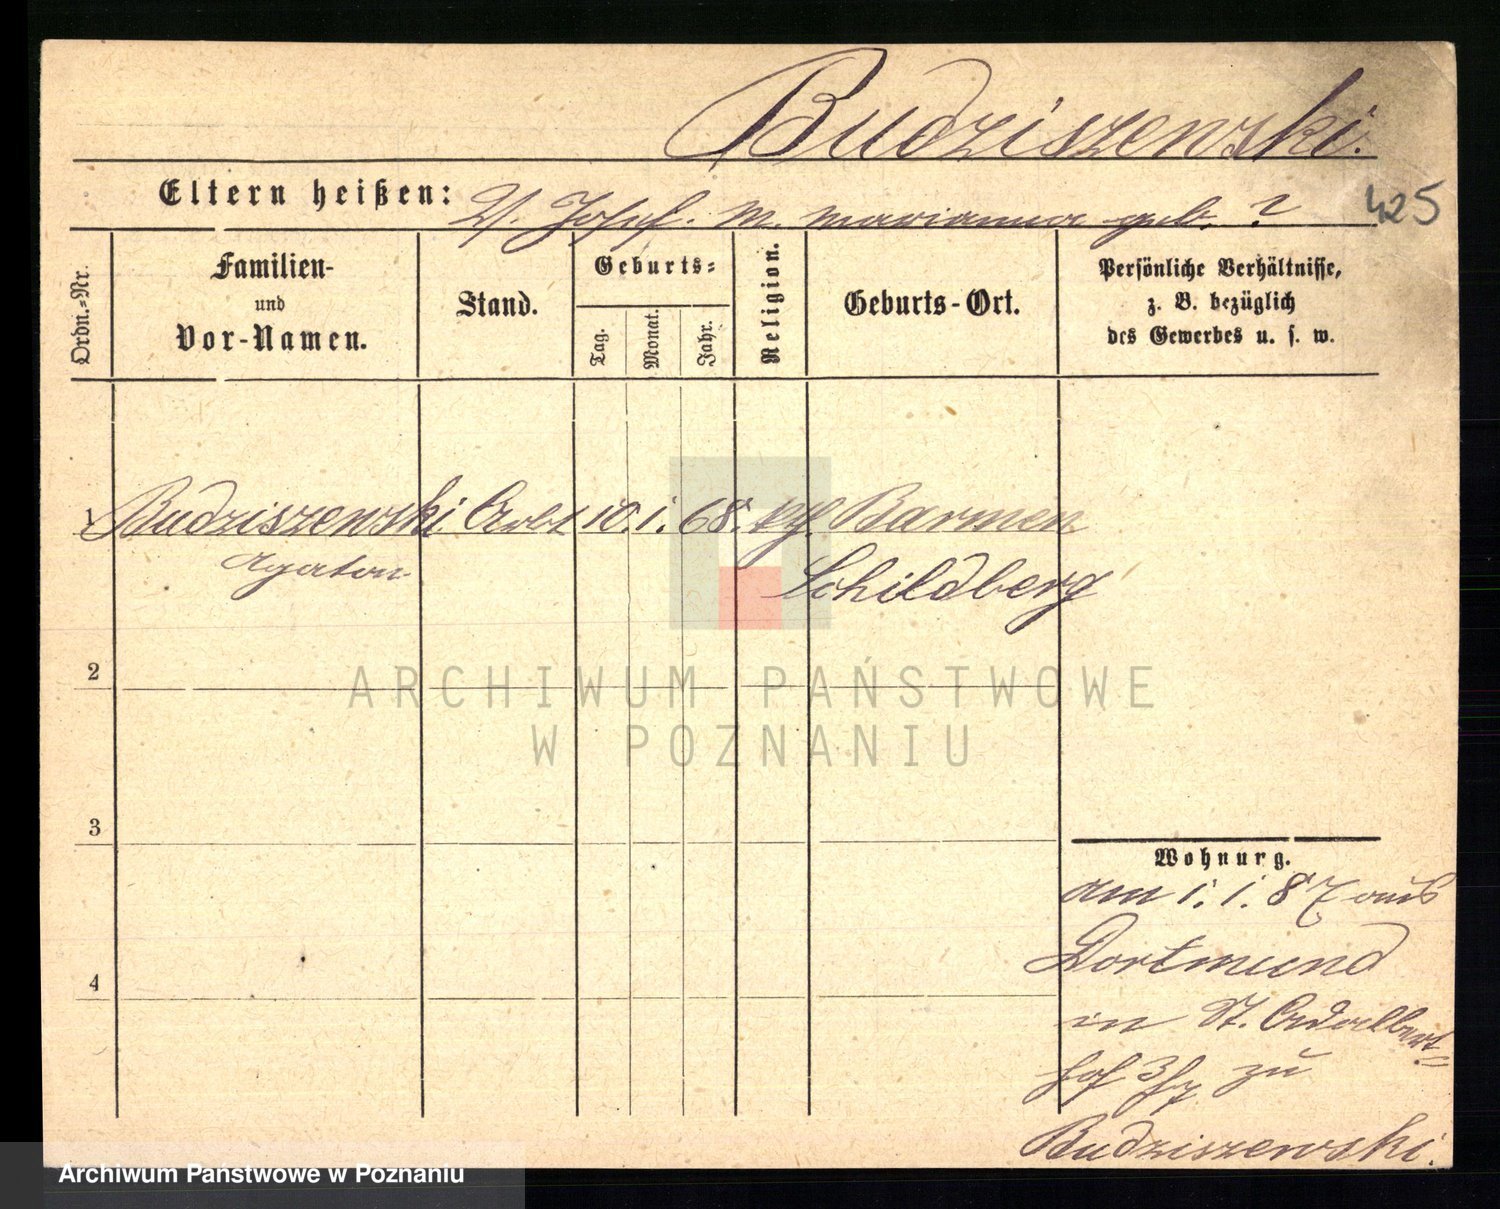 Budziszewski.
Eltern heißen: V. Josef. M. Marianna geb. ?
425
Ordn.-Nr.
Familien-
und
Vor-Namen.
Stand.
Geburts-
Tag.
Monat.
Jahr.
Religion.
Geburts-Ort.
Persönliche Verhältnisse,
z. B. bezüglich
des Gewerbes u. s. w.
1 Budziszewski Arbt 10. 1. 68. kth. Barmen
Agaton Schildberg
2
3
4
Wohnung.
am 1. 1. 87 aus
Dortmund
in St. Adalbert=
hof 3 zu
Budziszewski.
ARCHIWUM PAŃSTWOWE
W POZNANIU
Archiwum Państwowe w Poznaniu